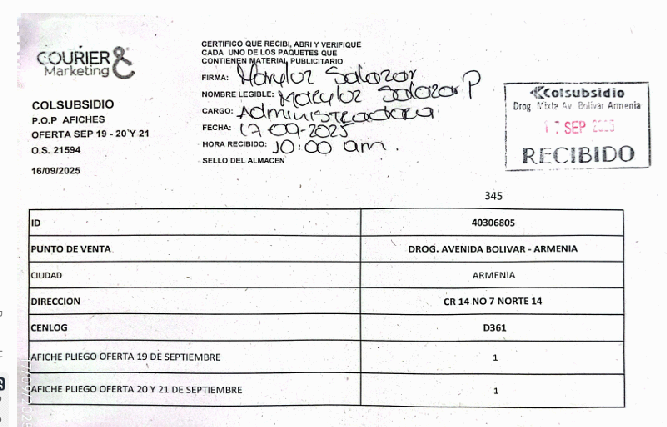 COURIER &
Marketing
COLSUBSIDIO
P.O.P AFICHES
OFERTA SEP 19 - 20 Y 21
O.S. 21594
16/09/2025
CERTIFICO QUE RECIBI, ABRI Y VERIFIQUE
CADA UNO DE LOS PAQUETES QUE
CONTIENEN MATERIAL PUBLICITARIO
FIRMA: Maryluz Salazar
NOMBRE LEGIBLE: Maryluz Salazar P
CARGO: Administradora
FECHA: 17-09-2025
HORA RECIBIDO: 10:00 am.
SELLO DEL ALMACEN
Colsubsidio
Drog. Mixta Av. Bolivar Armenia
SEP
RECIBIDO
345
ID 40306805
PUNTO DE VENTA DROG. AVENIDA BOLIVAR - ARMENIA
CIUDAD ARMENIA
DIRECCION CR 14 NO 7 NORTE 14
CENLOG D361
AFICHE PLIEGO OFERTA 19 DE SEPTIEMBRE 1
AFICHE PLIEGO OFERTA 20 Y 21 DE SEPTIEMBRE 1